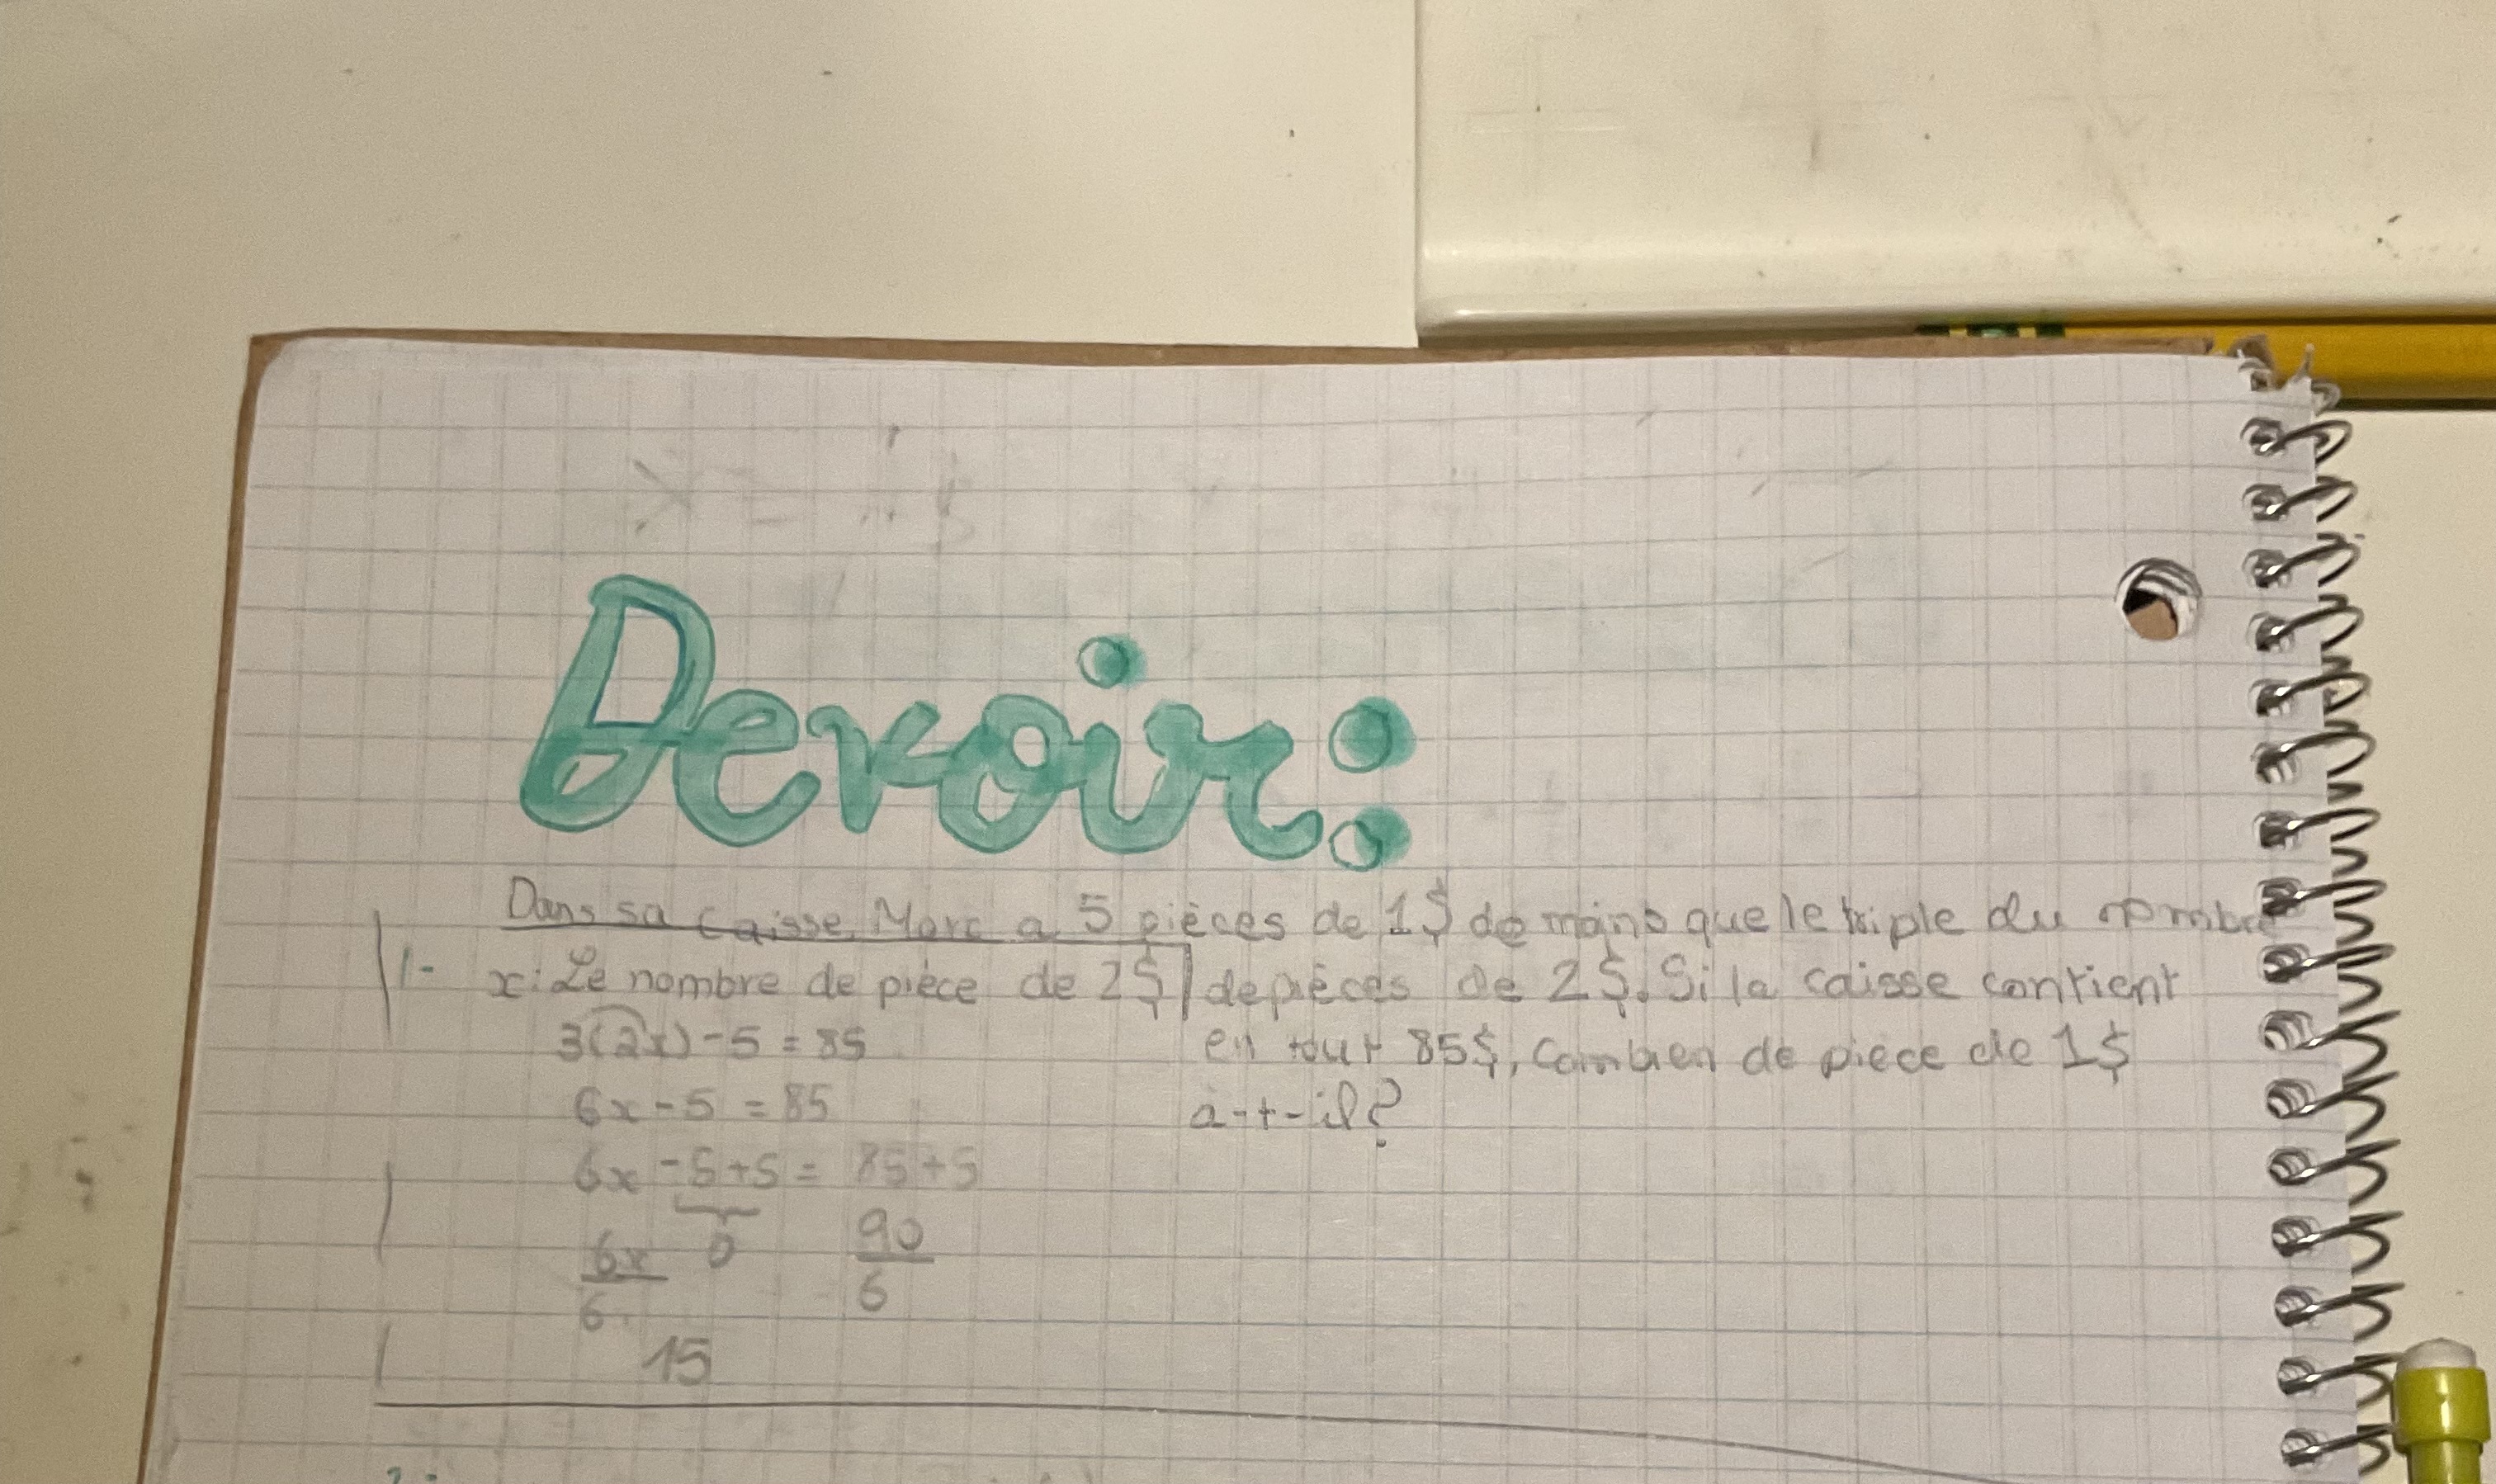 Devoir:
Dans sa caisse, Marc a 5 pièces de 1$ de moins que le triple du nombre
1- x: Le nombre de pièce de 2$ de pièces de 2$. Si la caisse contient
3(2x)-5 = 85 en tout 85$, combien de piece de 1$
6x-5 = 85 a-t-il?
6x -5+5 = 85+5
6x 0 90
6 6
15